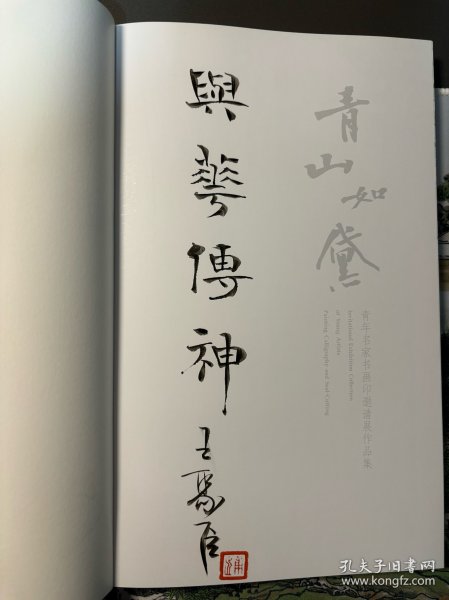 青山如黛
青年名家书画印邀请展作品集
Invitational Exhibition Collection
of Young Artists
Painting, Calligraphy and Seal-Cutting
與華傳神
王
孔夫子旧书网
www.kongfz.com